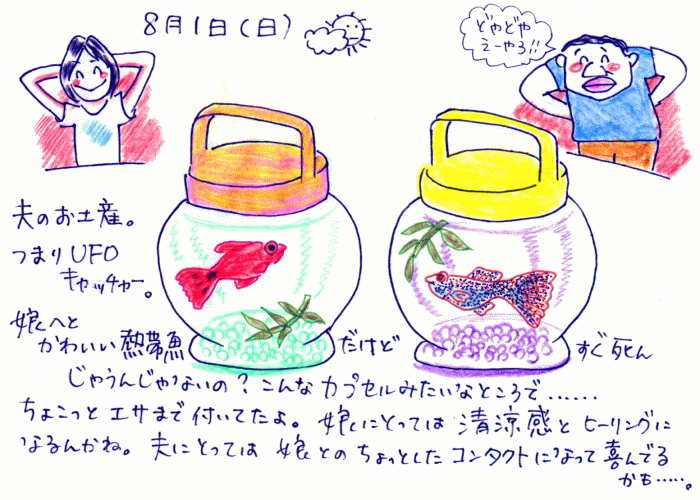 8月1日(日)
どやどや
えーやろ!!
夫のお土産。
つまりUFO
キャッチャー。
娘へと
かわいい熱帯魚だけど すぐ死ん
じゃうんじゃないの?こんなカプセルみたいなところで……
ちょこっとエサまで付いてたよ。娘にとっては清涼感とヒーリングに
なるんかね。夫にとっては娘とのちょっとしたコンタクトになって喜んでる
かも……。